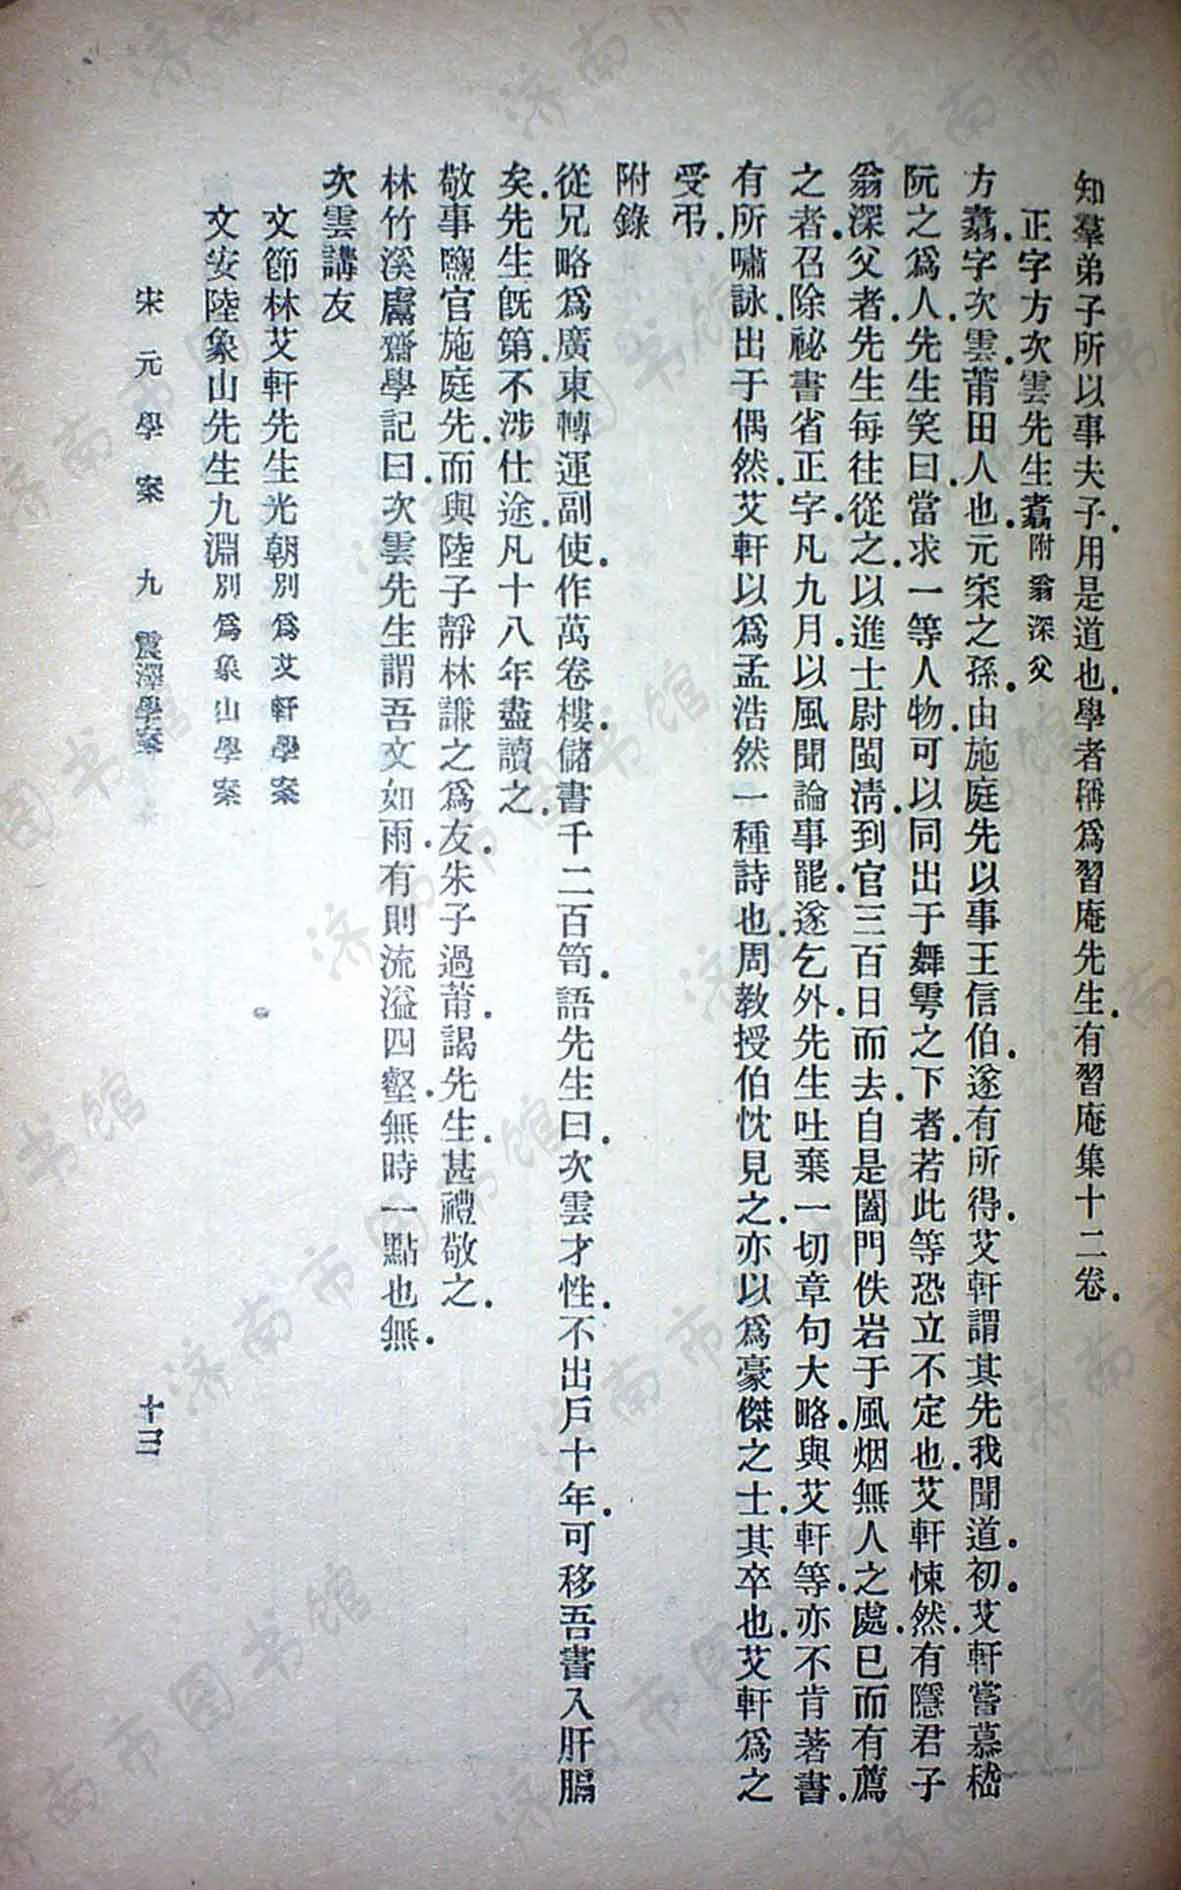 知羣弟子所以事夫子.用是道也.學者稱爲習庵先生.有習庵集十二卷.
正字方次雲先生翥附翁深父
方翥.字次雲.莆田人也.元寀之孫.由施庭先以事王信伯.遂有所得.艾軒謂其先我聞道.初.艾軒嘗慕嵇
阮之爲人.先生笑曰.當求一等人物.可以同出于舞雩之下者.若此等恐立不定也.艾軒悚然.有隱君子
翁深父者.先生每往從之.以進士尉閩清.到官三百日而去.自是闔門佚岩于風烟無人之處.已而有薦
之者.召除祕書省正字.凡九月.以風聞論事罷.遂乞外.先生吐棄一切章句.大略與艾軒等.亦不肯著書.
有所嘯詠.出于偶然.艾軒以爲孟浩然一種詩也.周教授伯忱見之.亦以爲豪傑之士.其卒也.艾軒爲之
受弔.
附錄
從兄略爲廣東轉運副使.作萬卷樓.儲書千二百笥.語先生曰.次雲才性.不出戶十年.可移吾書入肝膈
矣.先生既第.不涉仕途.凡十八年盡讀之.
敬事鹽官施庭先.而與陸子靜林謙之爲友.朱子過莆.謁先生.甚禮敬之.
林竹溪鬳齋學記曰.次雲先生謂吾文如雨.有則流溢四壑.無時一點也無.
次雲講友
文節林艾軒先生光朝別爲艾軒學案
文安陸象山先生九淵別爲象山學案
宋元學案 九 震澤學案 十三
济南市图书馆